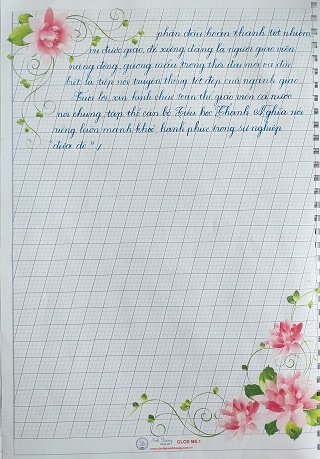 phấn đấu hoàn thành tốt nhiệm
vụ được giao, để xứng đáng là người giáo viên
năng động, gương mẫu trong thời đại mới và đặc
biệt là tiếp nối truyền thống tốt đẹp của ngành giáo.
Cuối lời, xin kính chúc toàn thể giáo viên cả nước
nói chung, tập thể cán bộ Tiểu học Thanh Nghĩa nói
riêng luôn mạnh khoẻ, hạnh phúc trong sự nghiệp
"đưa đò"./
GLCD M5.1